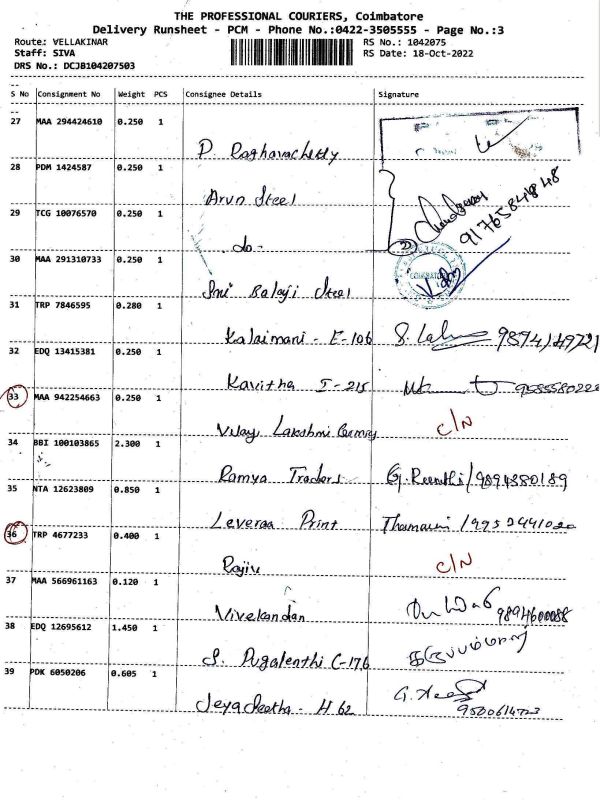 THE PROFESSIONAL COURIERS, Coimbatore
Delivery Runsheet - PCM - Phone No.:0422-3505555 - Page No.:3
Route: VELLAKINAR RS No.: 1042075
Staff: SIVA RS Date: 18-Oct-2022
DRS No.: DCJB104207503
S No Consignment No Weight PCS Consignee Details Signature
27 MAA 294424610 0.250 1
P. Raghavachetty
28 PDM 1424587 0.250 1
Arun Steel
29 TCG 10076570 0.250 1
do- 9176584848
30 MAA 291310733 0.250 1
COIMBATORE
Sri Balaji Steel
31 TRP 7846595 0.280 1
Kalaimani - E-106 9894149721
32 EDQ 13415381 0.250 1
Kavitha I-215
33 MAA 942254663 0.250 1
C/N
Vijay Lakshmi
34 BBI 100103865 2.300 1
Ramya Traders G. Reenthi/9894880189
35 NTA 12623809 0.850 1
Leveraa Print
36 TRP 4677233 0.400 1
Rajiv C/N
37 MAA 566961163 0.120 1
Vivekandan 9894600088
38 EDQ 12695612 1.450 1
S. Pugalenthi C-176
39 PDK 6050206 0.605 1
Jeya Geetha - H 62 9500614723